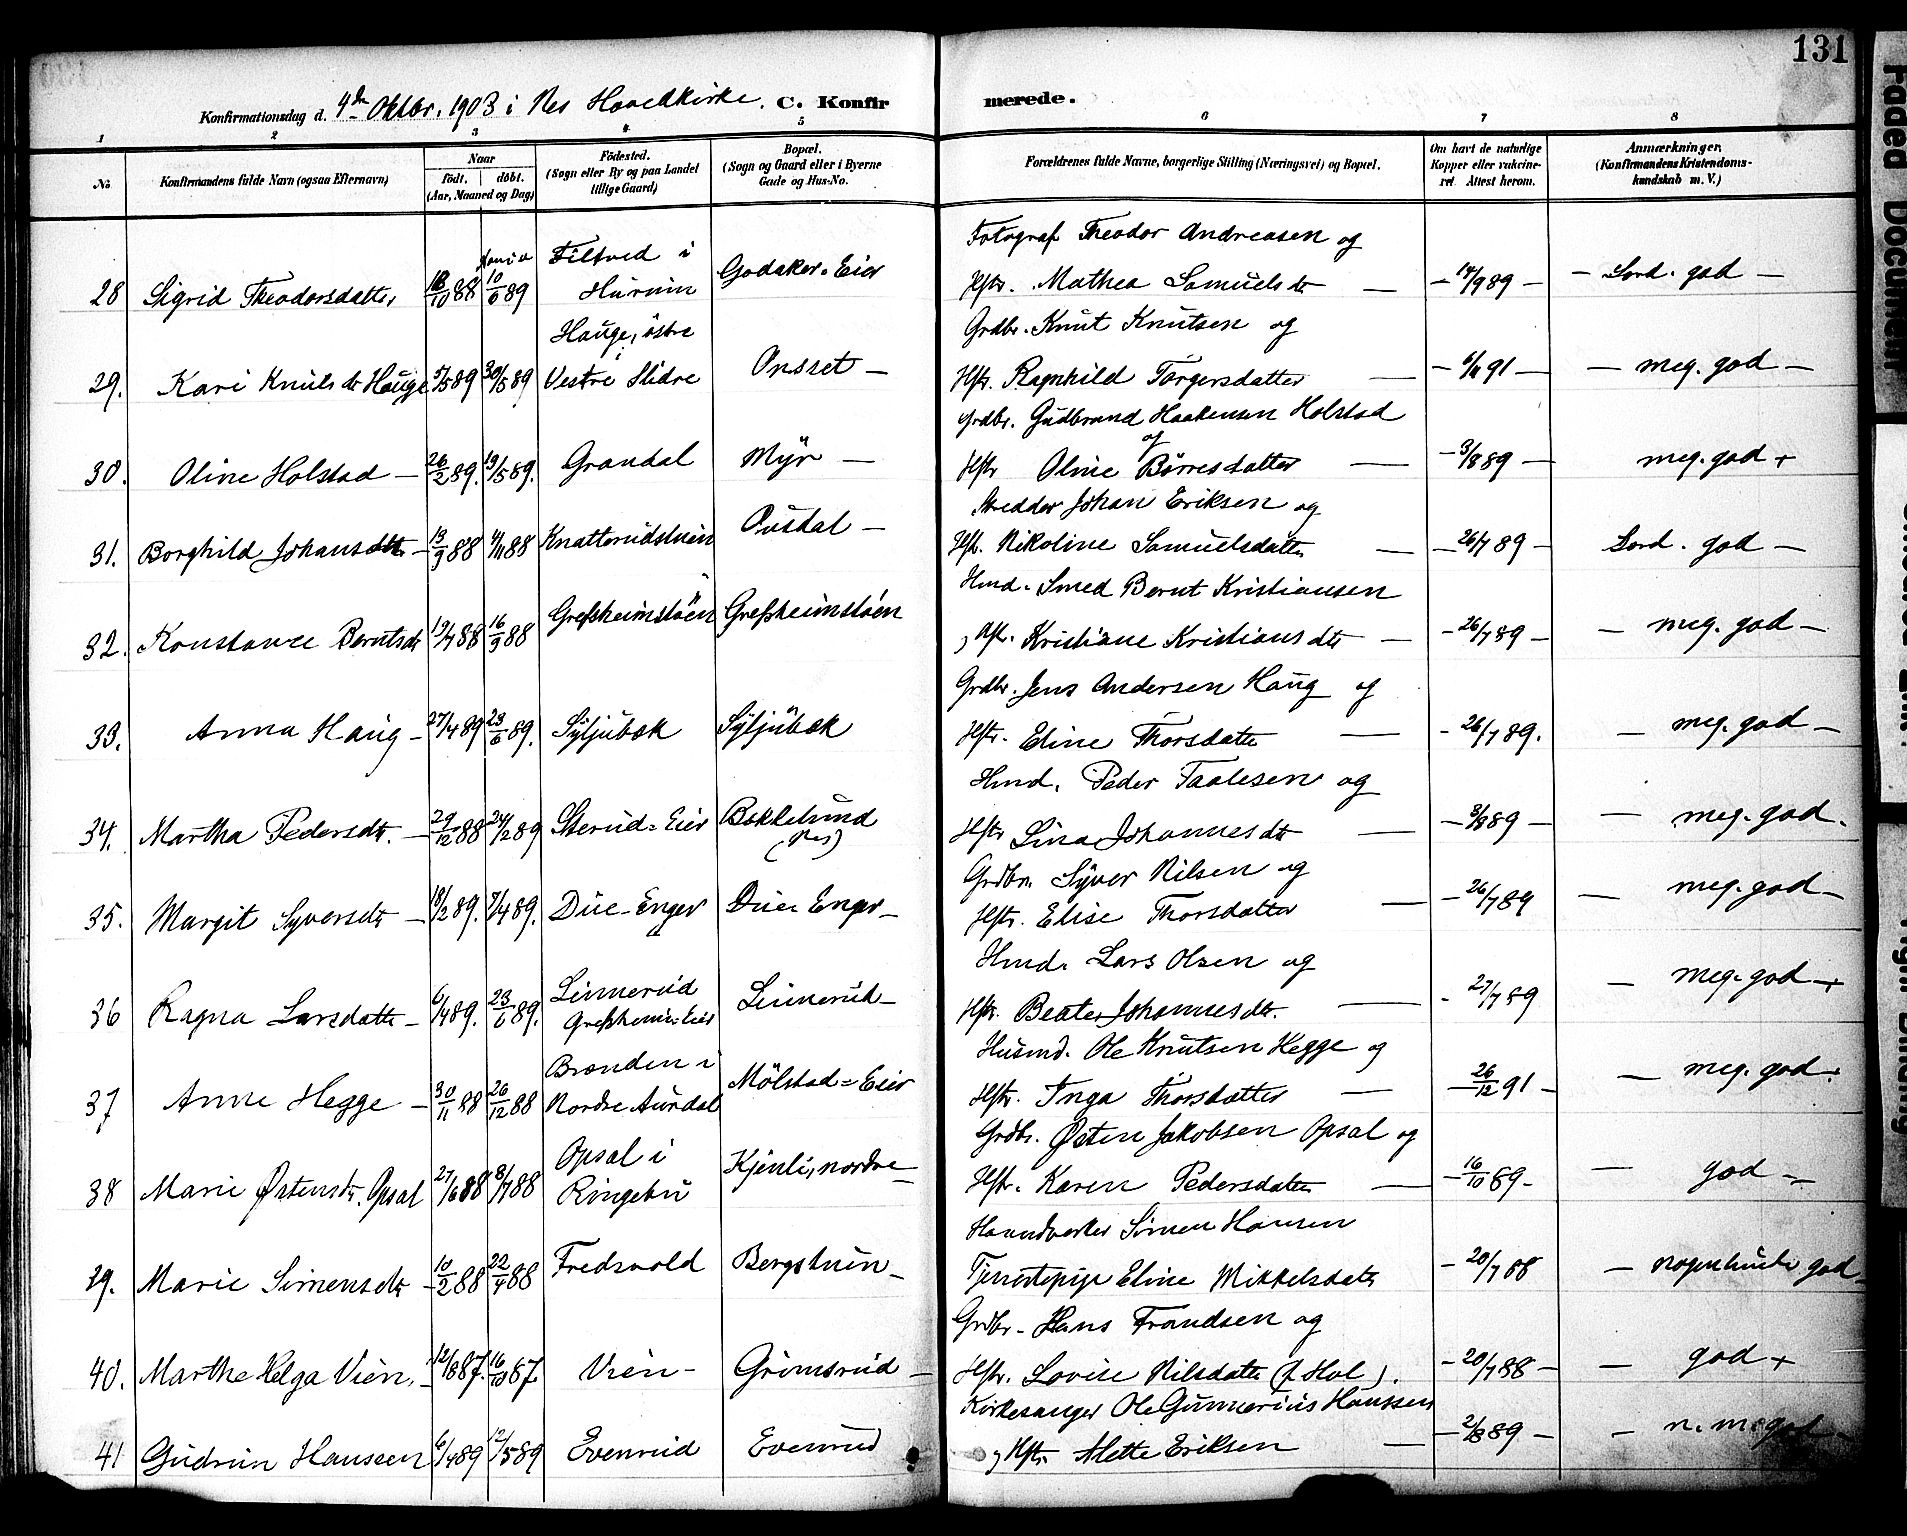 131
Konfirmationsdag d. 4de Oktbr. 1903 i Nes Hovedkirke. C. Konfirmerede.
1 2 3 4 5 6 7 8
No Konfirmandens fulde Navn (ogsaa Efternavn) Naar født, døbt. (Aar, Maaned og Dag) Födested. (Sogn eller By og paa Landet tillige Gaard) Bopæl. (Sogn og Gaard eller i Byerne Gade og Hus-No. Forældrenes fulde Navne, borgerlige Stilling (Næringsvei) og Bopæl. Om havt de naturlige Kopper eller vakcineret Attest herom. Anmærkninger. (Konfirmandens Kristendomskundskab m. V.)
Filtved i Fotograf Theodor Andreasen og
28 Sigrid Theodorsdatter 18/10 88 10/6 89 Hurum Godaker-Eier Hstr. Mathea Samuelsdtr — 17/9 89 — Særd. god —
Hauge, östre Grdbr. Knut Knutsen og
29. Kari Knutsdtr Hauge 5/5 89 30/5 89 i Vestre Slidre Onsset — Hstr. Ragnhild Torgersdatter — 6/11 91 — meg. god —
Grdbr. Gudbrand Haakensen Holstad og
30. Oline Holstad — 26/2 89. 19/5 89. Grandal Myr — Hstr Oline Börresdatter — 3/8 89 — meg. god +
Skrædder Johan Eriksen og
31. Borghild Johansdtr — 13/9 88 4/11 88 Knatterudstuen Oustal — Hst. Nikoline Samuelsdatter — 26/7 89 — Særd. god —
Hmd. Smed Bernt Kristiansen
32. Konstance Berntsdtr 19/7 88 16/9 88 Grefsheimstöen Grefsheimstöen og Hst. Kristiane Kristiansdtr — 26/7 89 — meg. god —
Grdbr. Jens Andersen Haug og
33. Anna Haug — 27/4 89 23/6 89. Syljubæk Syljubæk Hstr. Eline Thorsdatter — 26/7 89. — meg. god —
Hmd. Peder Taalesen og
34. Martha Pedersdtr. — 29/12 88 24/2 89 Sterud-Eier Bakkelund (Nes) Hstr Lina Johannesdtr — 3/8 89 — meg. god.
Grdbr. Syver Nilsen og
35. Margit Syversdtr — 18/2 89. 7/4 89. Due-Enger Due-Enger — Hstr. Elise Thorsdatter — 26/7 89 — meg. god —
Hmd. Lars Olsen og
36 Ragna Larsdatter — 6/4 89. 23/6 89. Linnerud Grefsheim-Eier Linnerud — Hstr. Beate Johannesdtr. — 27/7 89 — meg. god +
Husmd. Ole Knutsen Hegge og
37 Anne Hegge — 30/11 88 26/12 88 Brænden i Nordre Aurdal Mölstad-Eier Hstr. Inga Thorsdatter — 26/12 91 — meg. god.
Grdbr. Østen Jakobsen Opsal og
38 Marie Østensdtr. Opsal 27/6 88 8/7 88 Opsal i Ringebu Kjenli, nordre — Hstr. Karen Pedersdatter — 16/10 89 — god —
Haandverker Simen Hansen
39. Marie Simensdtr 10/2 88 22/4 88 Fredsvold Bergstuen — Tjenestepige Eline Mikkelsdatter — 20/7 88 — nogenlunde god
Grdbr. Hans Frandsen og
40. Marthe Helga Vien. 12/8 87. 16/10 87. Vien — Grimsrud — Hstr. Lovise Nilsdatter (f. Hol). — 20/7 88 — god +
Kirkesanger Ole Gunnerius Hanssen
41 Gudrun Hanssen 6/4 89 12/5 89 Evenrud Evenrud og Hstr. Mette Eriksen — 2/8 89 — n. m. god —
Faded Document